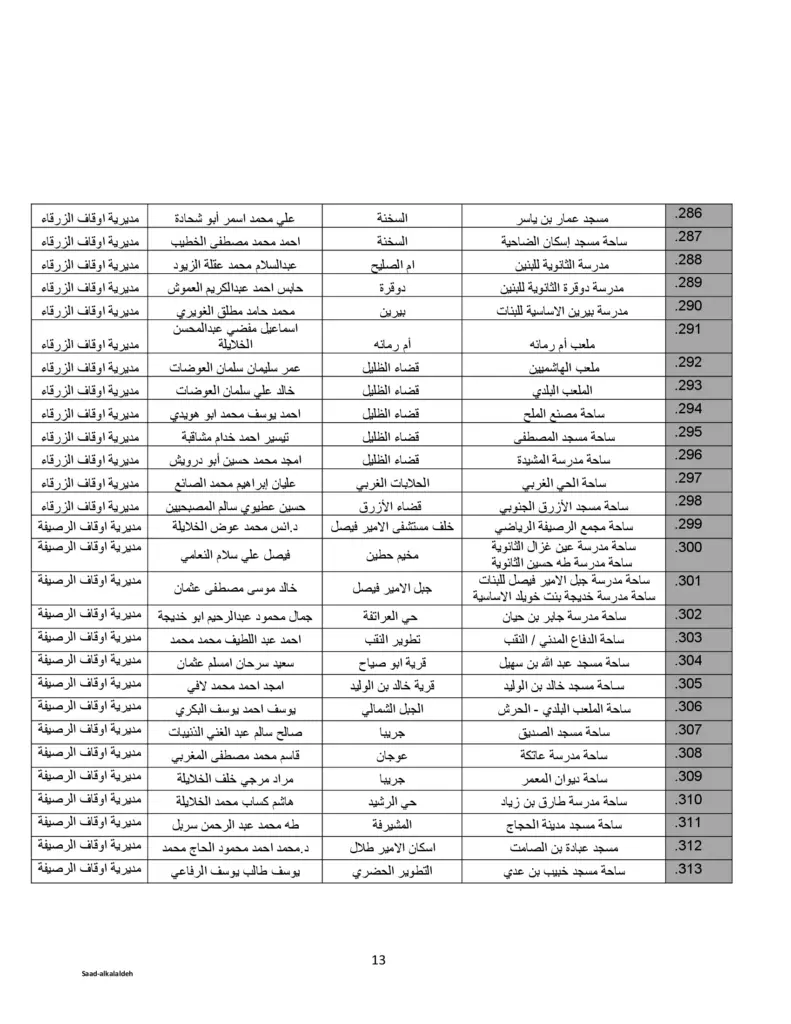 286. مسجد عمار بن ياسر السخنة علي محمد اسمر أبو شحادة مديرية اوقاف الزرقاء
287. ساحة مسجد إسكان الضاحية السخنة احمد محمد مصطفى الخطيب مديرية اوقاف الزرقاء
288. مدرسة الثانوية للبنين ام الصليح عبدالسلام محمد عقلة الزيود مديرية اوقاف الزرقاء
289. مدرسة دوقرة الثانوية للبنين دوقرة حابس احمد عبدالكريم العموش مديرية اوقاف الزرقاء
290. مدرسة بيرين الاساسية للبنات بيرين محمد حامد مطلق الغويري مديرية اوقاف الزرقاء
291. ملعب أم رمانه أم رمانه اسماعيل مفضي عبدالمحسن
الخلايلة مديرية اوقاف الزرقاء
292. ملعب الهاشميين قضاء الظليل عمر سليمان سلمان العوضات مديرية اوقاف الزرقاء
293. الملعب البلدي قضاء الظليل خالد علي سلمان العوضات مديرية اوقاف الزرقاء
294. ساحة مصنع الملح قضاء الظليل احمد يوسف محمد ابو هويدي مديرية اوقاف الزرقاء
295. ساحة مسجد المصطفى قضاء الظليل تيسير احمد خدام مشاقبة مديرية اوقاف الزرقاء
296. ساحة مدرسة المشيدة قضاء الظليل امجد محمد حسين أبو درويش مديرية اوقاف الزرقاء
297. ساحة الحي الغربي الحلابات الغربي عليان إبراهيم محمد الصانع مديرية اوقاف الزرقاء
298. ساحة مسجد الأزرق الجنوبي قضاء الأزرق حسين عطيوي سالم المصبحيين مديرية اوقاف الزرقاء
299. ساحة مجمع الرصيفة الرياضي خلف مستشفى الامير فيصل د.انس محمد عوض الخلايلة مديرية اوقاف الرصيفة
300. ساحة مدرسة عين غزال الثانوية
ساحة مدرسة طه حسين الثانوية مخيم حطين فيصل علي سلام النعامي مديرية اوقاف الرصيفة
301. ساحة مدرسة جبل الامير فيصل للبنات
ساحة مدرسة خديجة بنت خويلد الاساسية جبل الامير فيصل خالد موسى مصطفى عثمان مديرية اوقاف الرصيفة
302. ساحة مدرسة جابر بن حيان حي العراتفة جمال محمود عبدالرحيم ابو خديجة مديرية اوقاف الرصيفة
303. ساحة الدفاع المدني / النقب تطوير النقب احمد عبد اللطيف محمد محمد مديرية اوقاف الرصيفة
304. ساحة مسجد عبد الله بن سهيل قرية ابو صياح سعيد سرحان امسلم عثمان مديرية اوقاف الرصيفة
305. ساحة مسجد خالد بن الوليد قرية خالد بن الوليد امجد احمد محمد لافي مديرية اوقاف الرصيفة
306. ساحة الملعب البلدي - الحرش الجبل الشمالي يوسف احمد يوسف البكري مديرية اوقاف الرصيفة
307. ساحة مسجد الصديق جريبا صالح سالم عبد الغني الذنيبات مديرية اوقاف الرصيفة
308. ساحة مدرسة عاتكة عوجان قاسم محمد مصطفى المغربي مديرية اوقاف الرصيفة
309. ساحة ديوان المعمر جريبا مراد مرجي خلف الخلايلة مديرية اوقاف الرصيفة
310. ساحة مدرسة طارق بن زياد حي الرشيد هاشم كساب محمد الخلايلة مديرية اوقاف الرصيفة
311. ساحة مسجد مدينة الحجاج المشيرفة طه محمد عبد الرحمن سربل مديرية اوقاف الرصيفة
312. مسجد عبادة بن الصامت اسكان الامير طلال د.محمد احمد محمود الحاج محمد مديرية اوقاف الرصيفة
313. ساحة مسجد خبيب بن عدي التطوير الحضري يوسف طالب يوسف الرفاعي مديرية اوقاف الرصيفة
13
Saad-alkalaldeh